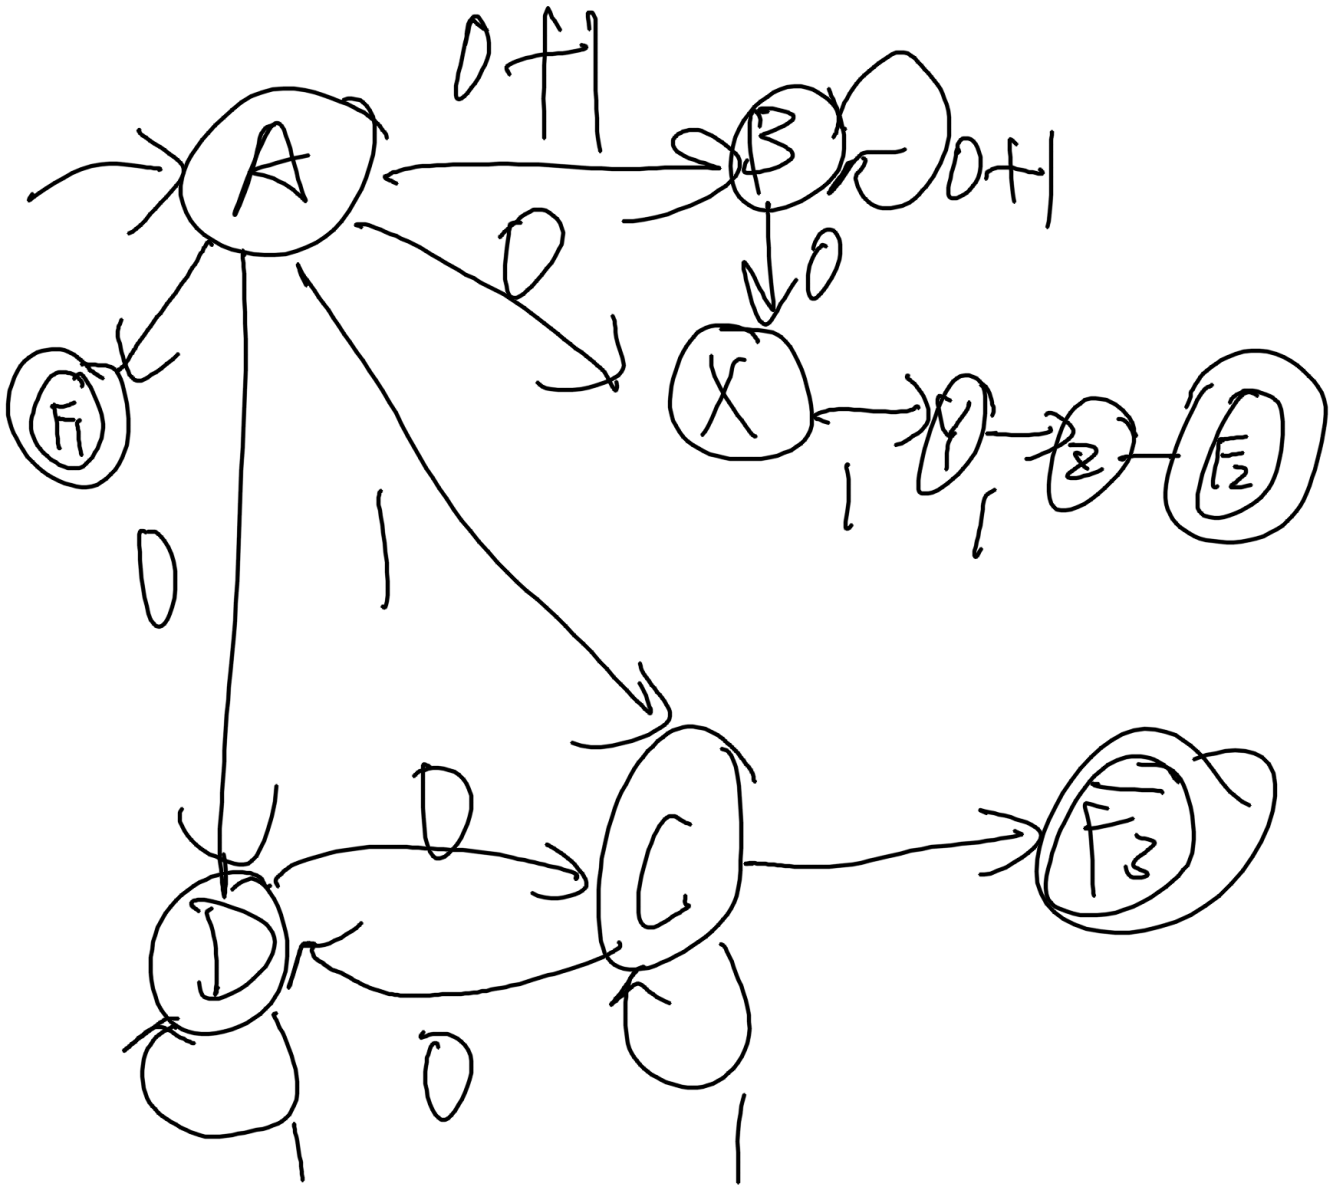 0+1
A
B
0+1
0
0
X
Y
Z
F2
F1
1
1
0
1
0
C
F3
D
0
1
1